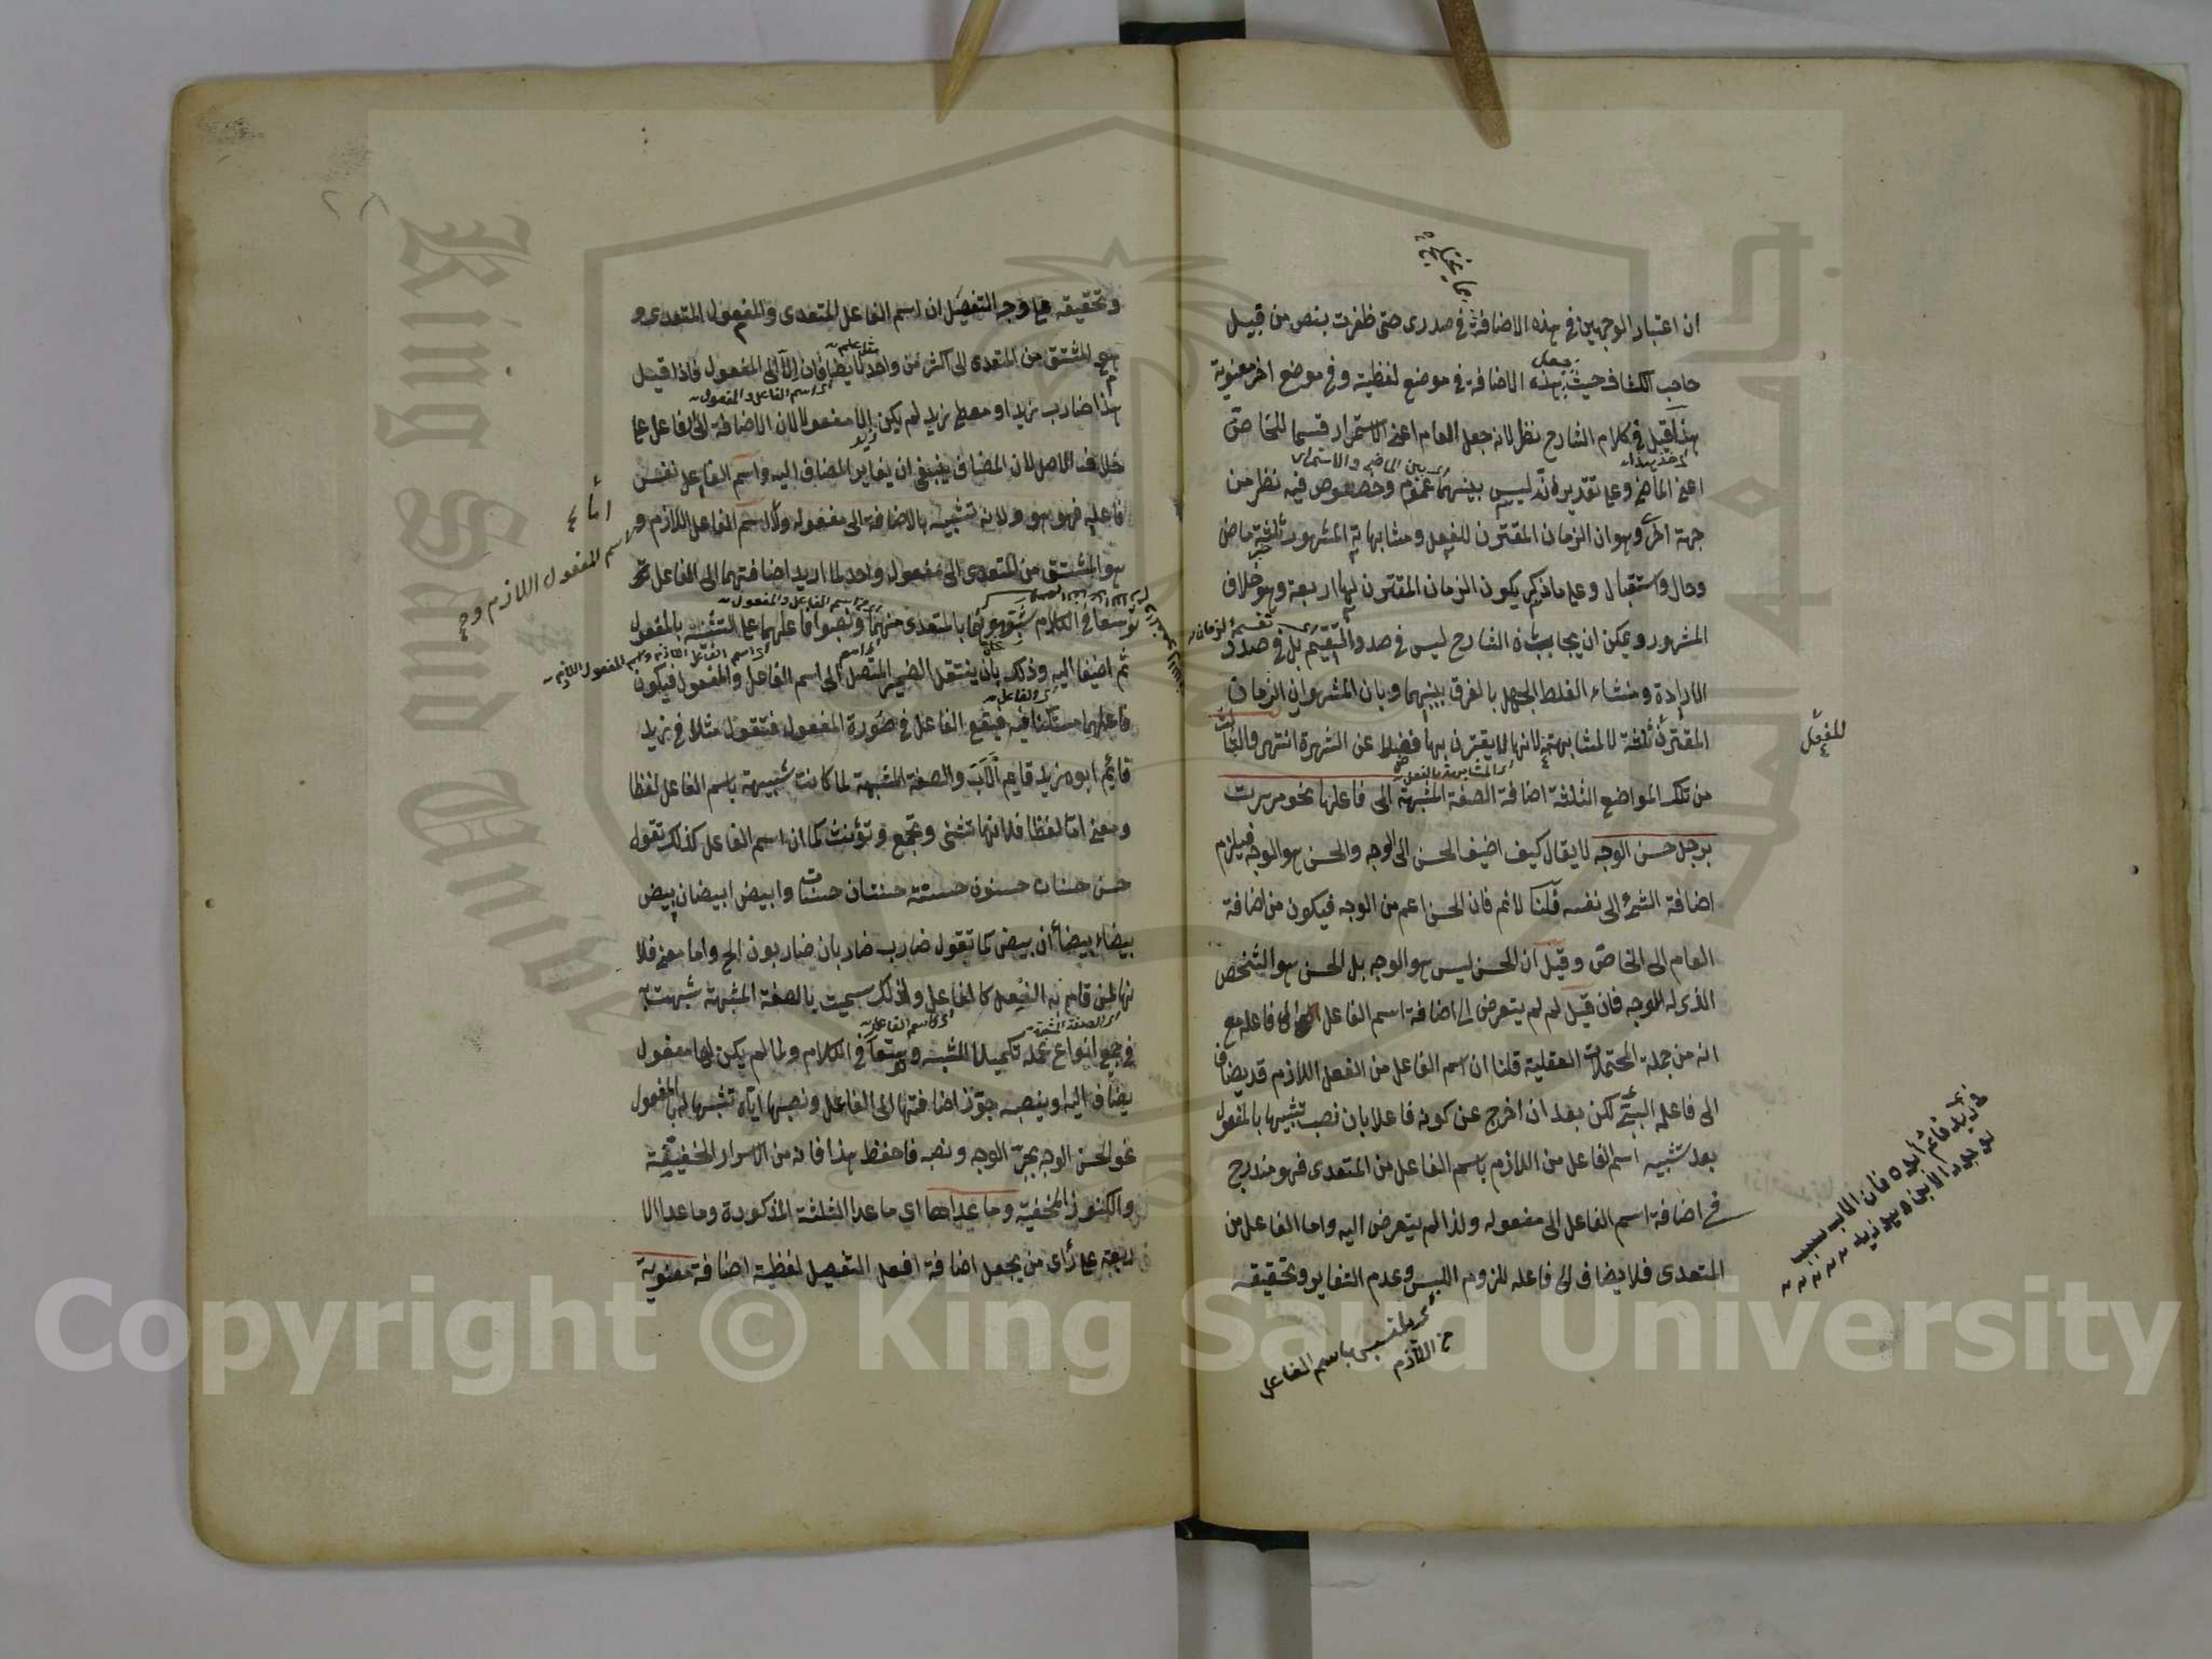 ان اعتبار الوجهين في هذه الاضافة في صدرى حتى ظفرت بنص من قبيل
صاحب الكشاف حيث جعل هذه الاضافة في موضع لفظية وفي موضع اخر معنوية
هذا قيل في كلام الشارح نظر لانه جعل العام اعنى الاستمرار قسما للخاص
اى بين الماضى والاستمرار
اعنى الماضى وعلى تقدير انه ليس بينهما عموم وخصوص فيه نظر من
جهة اخرى وهو ان الزمان المقترن للفعل ومشابهاته المشهور ثلثة ماض
وحال واستقبال وعلى ما ذكر يكون الزمان المقترن لها اربعة وهو خلاف
المشهور ويمكن ان يجاب بان الشارح ليس في صدد التقسيم بل في صدد
الارادة ومنشاء الغلط الجهل بالفرق بينهما وبان المشهور ان الزمان
المقترن ثلثة لا لمشابهته لانها لا يقترن بها فضلا عن الشهرة انتهى والثالث
للفعل
من تلك المواضع الثلثة اضافة الصفة المشبهة الى فاعلها نحو مررت
برجل حسن الوجه لا يقال كيف اضيف الحسن الى الوجه والحسن هو الوجه فيلزم
اضافة الشئ الى نفسه قلنا لا نم فان الحسن اعم من الوجه فيكون من اضافة
العام الى الخاص وقيل ان الحسن ليس هو الوجه بل الحسن هو الشخص
الذى له الوجه فان قيل لم لم يتعرض الى اضافة اسم الفاعل الى فاعله مع
انه من جملة المحتملات العقلية قلنا ان اسم الفاعل من الفعل اللازم قد يضاف
الى فاعله البتة لكن بعد ان اخرج عن كونه فاعلا بان نصب تشبيها بالمفعول
بعد تشبيه اسم الفاعل من اللازم باسم الفاعل من المتعدى فهو مندرج
في اضافة اسم الفاعل الى مفعوله ولذا لم يتعرض اليه واما الفاعل من
المتعدى فلا يضاف الى فاعله للزوم اللبس وعدم التغاير وتحقيقه
زيد قائم ابوه فان الاب سبب
لوجود الابن
باسم الفاعل
من اللازم
وتحقيقه على وجه التفصيل ان اسم الفاعل المتعدى والمفعول المتعدى و
هو المشتق من المتعدى الى اكثر من واحد لا يضافان الا الى المفعول فاذا قيل
اى اسم الفاعل والمفعول
هذا ضارب زيد او معطى زيد لم يكن زيد الا مفعولا لان الاضافة الى الفاعل على
خلاف الاصل لان المضاف ينبغى ان يغاير المضاف اليه واسم الفاعل نفس
فاعله فهو هو ولانه تشبيه بالاضافة الى مفعوله ولا اسم الفاعل اللازم و
اما
اسم المفعول اللازم و
هو المشتق من المتعدى الى مفعول واحد لما اريد اضافتهما الى الفاعل
توسعا في الكلام شبهوهما بالمتعدى منهما ونصبوا فاعلهما على التشبيه بالمفعول
ثم اضيفا اليه وذلك بان ينتقل الضمير المتصل الى اسم الفاعل والمفعول فيكون
فاعلهما مستكنا فيه فيقع الفاعل في صورة المفعول فتقول مثلا في زيد
قائم ابوه زيد قايم الاب والصفة المشبهة لما كانت شبيهة باسم الفاعل لفظا
ومعنى اما لفظا فلانها تثنى وتجمع وتؤنث كما ان اسم الفاعل كذلك تقول
حسن حسنان حسنون حسنة حسنتان حسنات وابيض ابيضان بيض
بيضاء بيضاأن بيض كما تقول ضارب ضاربان ضاربون الخ واما معنى فلا
نها لمن قام به الفعل كالفاعل ولذلك سميت بالصفة المشبهة شبهت به
في جميع انواع عمله تكميلا للشبه وتوسعا في الكلام ولما لم يكن لها مفعول
يضاف اليه او ينصبه جوز اضافتها الى الفاعل ونصبها اياه تشبيها له بالمفعول
نحو الحسن الوجه بجر الوجه ونصبه فاحفظ هذا فانه من الاسرار الخفية
والكنوز المخفية وما عداها اى ما عدا الثلثة المذكورة وما عدا الا
ربعة على رأى من يجعل اضافة افعل التفضيل لفظية اضافة معنوية
Copyright © King Saud University
King Saud University